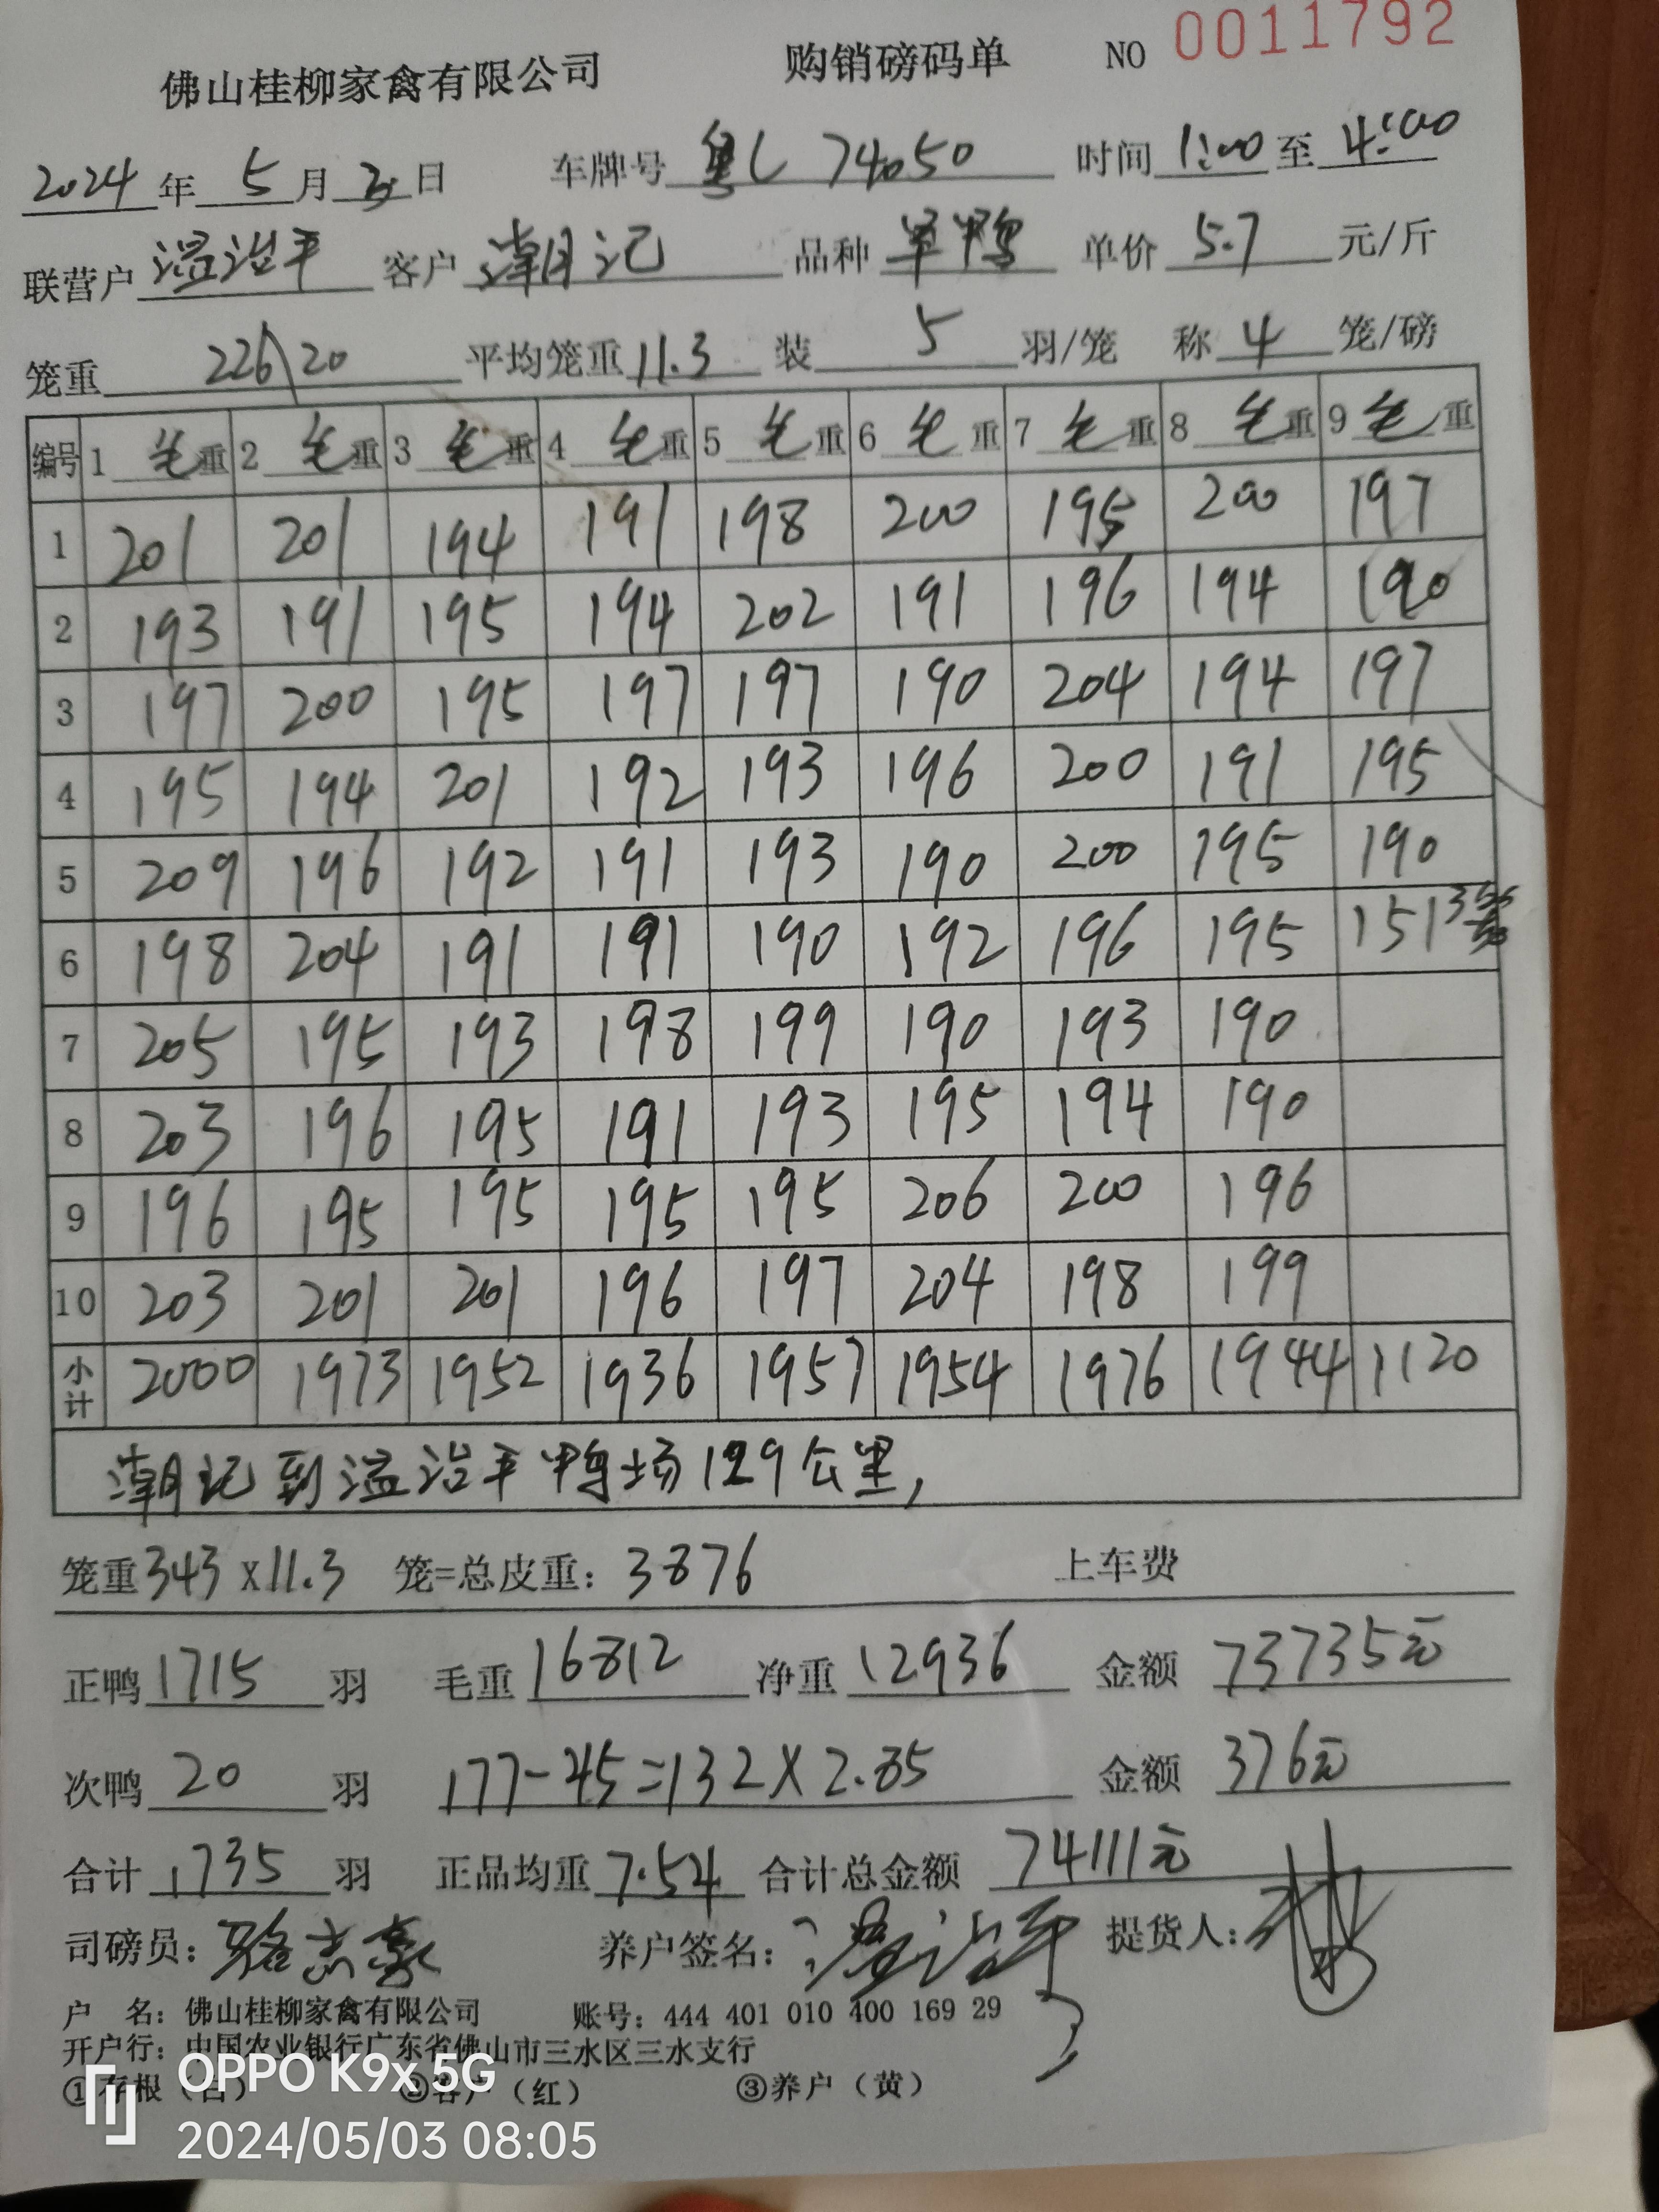 佛山桂柳家禽有限公司 购销磅码单 NO 0011792
2024年5月3日 车牌号 粤C 74050 时间 1:00至4:00
联营户 温治平 客户 潮记 品种 单价 5.7 元/斤
笼重 226\20 平均笼重 11.3 装 5 羽/笼 称 4 笼/磅
编号 1 毛重 2 毛重 3 毛重 4 毛重 5 毛重 6 毛重 7 毛重 8 毛重 9 毛重
1 201 201 194 191 198 200 195 200 197
2 193 191 195 194 202 191 196 194 190
3 197 200 195 197 197 190 204 194 197
4 195 194 201 192 193 196 200 191 195
5 209 196 192 191 193 190 200 195 190
6 198 204 191 191 190 192 196 195 151 3
7 205 195 193 198 199 190 193 190
8 203 196 195 191 193 195 194 190
9 196 195 195 195 195 206 200 196
10 203 201 201 196 197 204 198 199
小计 2000 1973 1952 1936 1957 1954 1976 1944 1120
潮记到温治平鸭场129公里,
笼重343x11.3 笼=总皮重:3876 上车费
正鸭 1715 羽 毛重 16812 净重 12936 金额 73735元
次鸭 20 羽 177-45=132X2.85 金额 376元
合计 1735 羽 正品均重 7.54 合计总金额 74111元
司磅员:骆志豪 养户签名:温治平 提货人:
户 名:佛山桂柳家禽有限公司 账号:444 401 010 400 169 29
开户行:中国农业银行广东省佛山市三水区三水支行
①存根(白) ②客户(红) ③养户(黄)
OPPO K9x 5G
2024/05/03 08:05